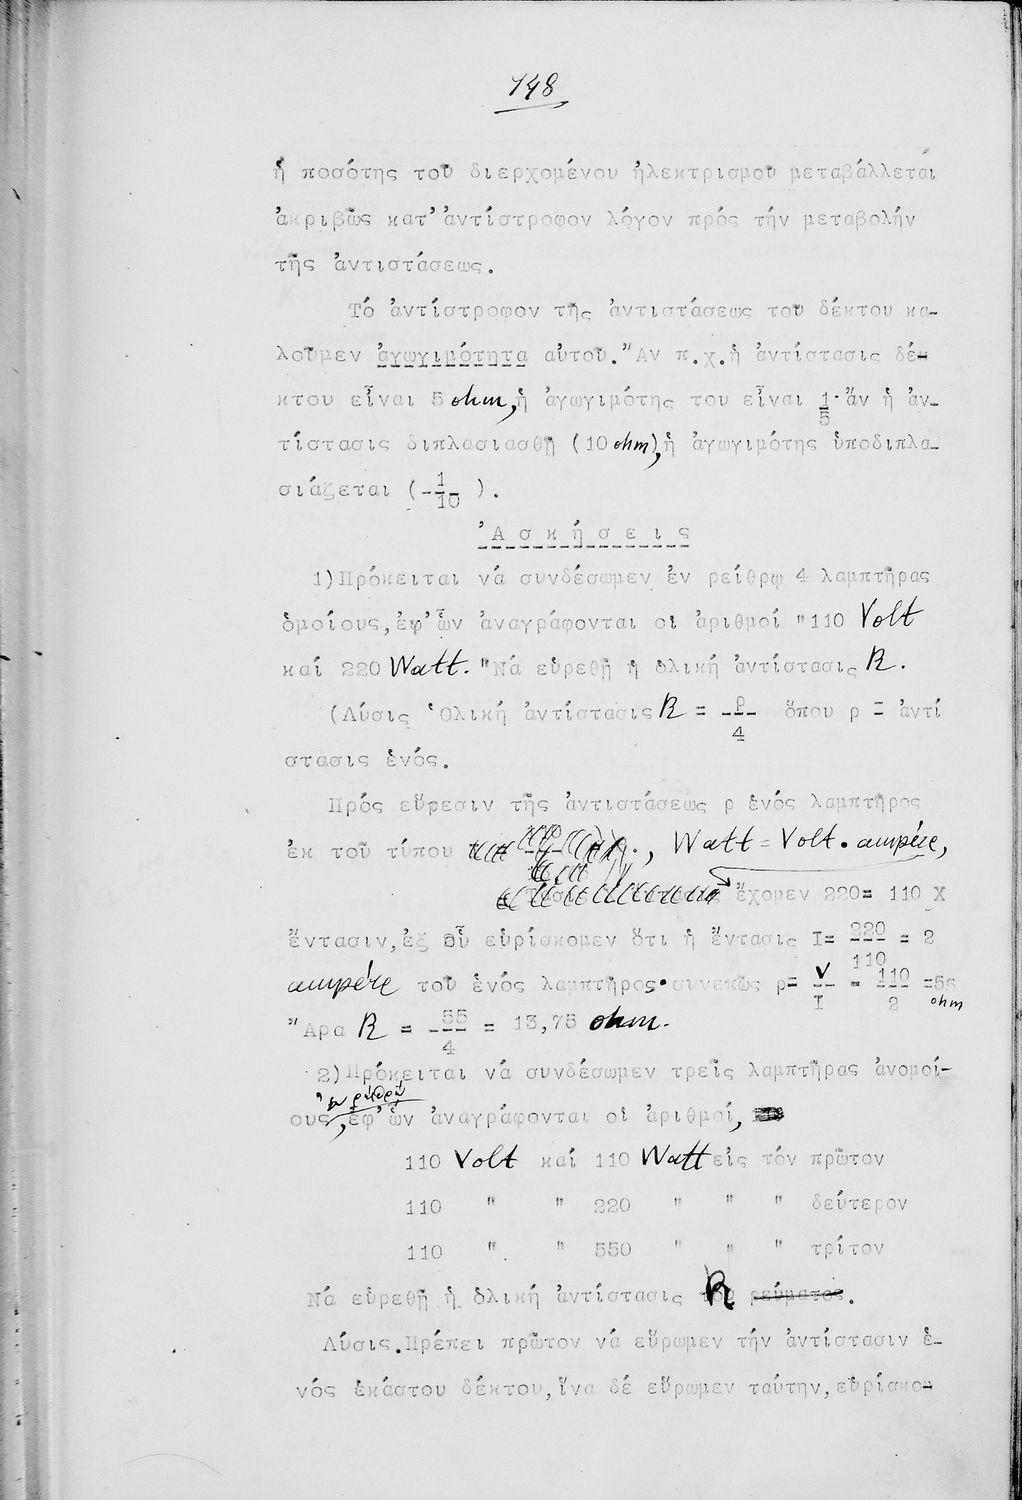 148
ἡ ποσότης τοῦ διερχομένου ἠλεκτρισμοῦ μεταβάλλεται
ἀκριβῶς κατ' ἀντίστροφον λόγον πρός τήν μεταβολήν
τῆς ἀντιστάσεως.
Τό ἀντίστροφον τῆς ἀντιστάσεως τοῦ δέκτου κα-
λοῦμεν ἀγωγιμότητα αὐτοῦ. Ἄν π.χ. ἡ ἀντίστασις δέ-
κτου εἶναι 5 ohm, ἡ ἀγωγιμότης του εἶναι 1/5· ἄν ἡ ἀν-
τίστασις διπλασιασθῇ (10 ohm), ἡ ἀγωγιμότης ὑποδιπλα-
σιάζεται (1/10).
Ἀσκήσεις
1) Πρόκειται νά συνδέσωμεν ἐν ρείθρῳ 4 λαμπτῆρας
ὁμοίους, ἐφ' ὧν ἀναγράφονται οἱ ἀριθμοί "110 Volt
καί 220 Watt." Νά εὑρεθῇ ἡ ὁλική ἀντίστασις R.
(Λύσις Ὁλική ἀντίστασις R = ρ/4 ὅπου ρ = ἀντί
στασις ἑνός.
Πρός εὕρεσιν τῆς ἀντιστάσεως ρ ἑνός λαμπτῆρος
ἐκ τοῦ τύπου , Watt = Volt . ampére,
ἔχομεν 220 = 110 X
ἔντασιν, ἐξ οὗ εὑρίσκομεν ὅτι ἡ ἔντασις I = 220/110 = 2
ampére τοῦ ἑνός λαμπτῆρος· συνεπῶς ρ = V/I = 110/2 = 55 ohm
Ἄρα R = 55/4 = 13,75 ohm.
2) Πρόκειται νά συνδέσωμεν τρεῖς λαμπτῆρας ἀνομοί-
ους ἐν ρείθρῳ, ἐφ' ὧν ἀναγράφονται οἱ ἀριθμοί,
110 Volt καί 110 Watt εἰς τόν πρῶτον
110 " " 220 " " " δεύτερον
110 " " 550 " " " τρίτον
Νά εὑρεθῇ ἡ ὁλική ἀντίστασις R ρεύματος.
Λύσις. Πρέπει πρῶτον νά εὕρωμεν τήν ἀντίστασιν ἑ-
νός ἑκάστου δέκτου, ἵνα δέ εὕρωμεν ταύτην, εὑρίσκο-